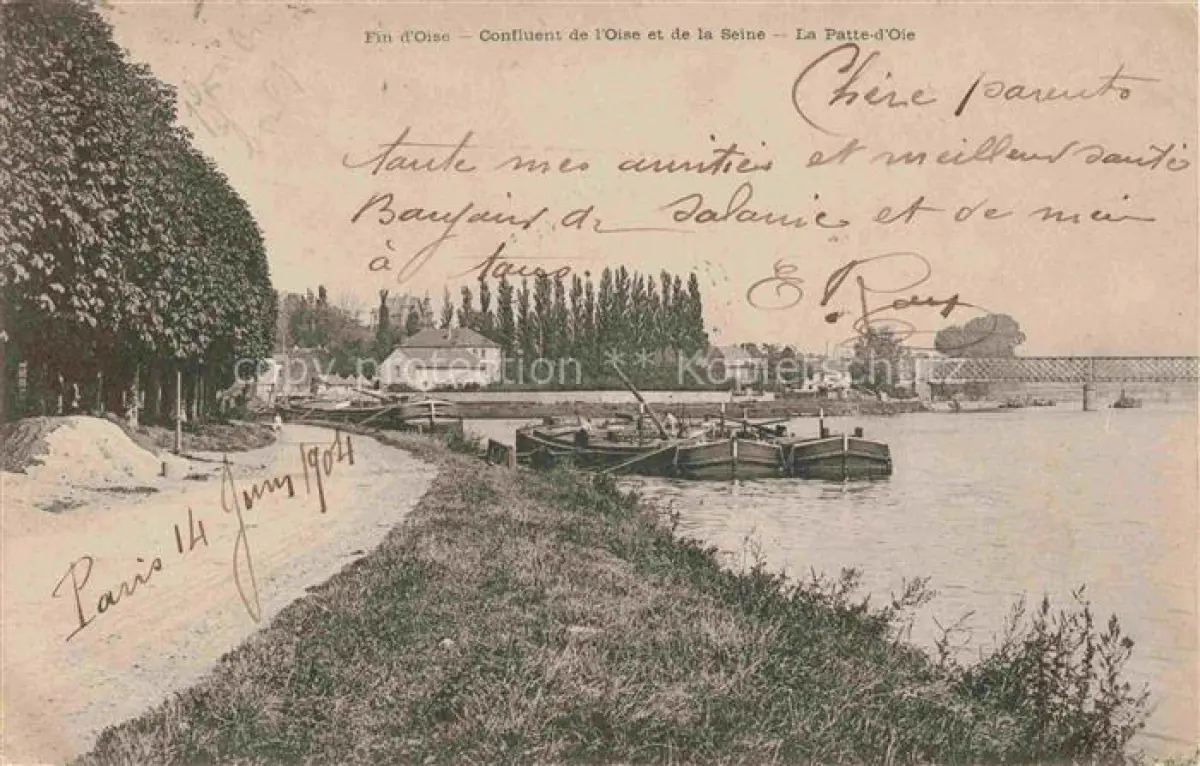 Fin d'Oise — Confluent de l'Oise et de la Seine — La Patte-d'Oie
Chère parents
taute mes amitiés et meilleur santé
Baujour de Salanie et de moi
à taus
E
copy protection ** Kopierschutz **
Paris 14 Juin 1904